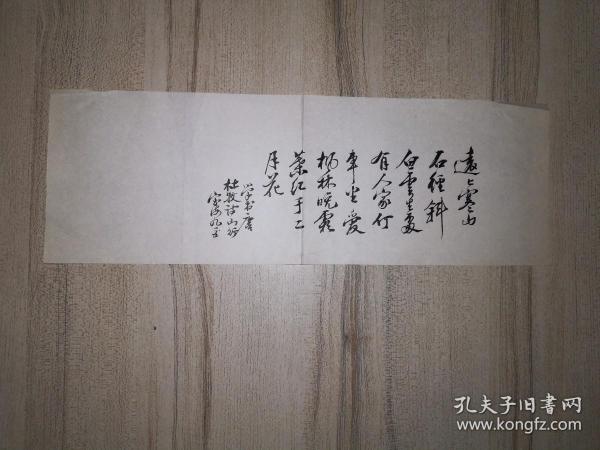 遠上寒山
石徑斜
白雲生處
有人家停
車坐愛
楓林晚霜
葉紅于二
月花
書唐
杜牧詩山行
孔夫子旧书网
www.kongfz.com